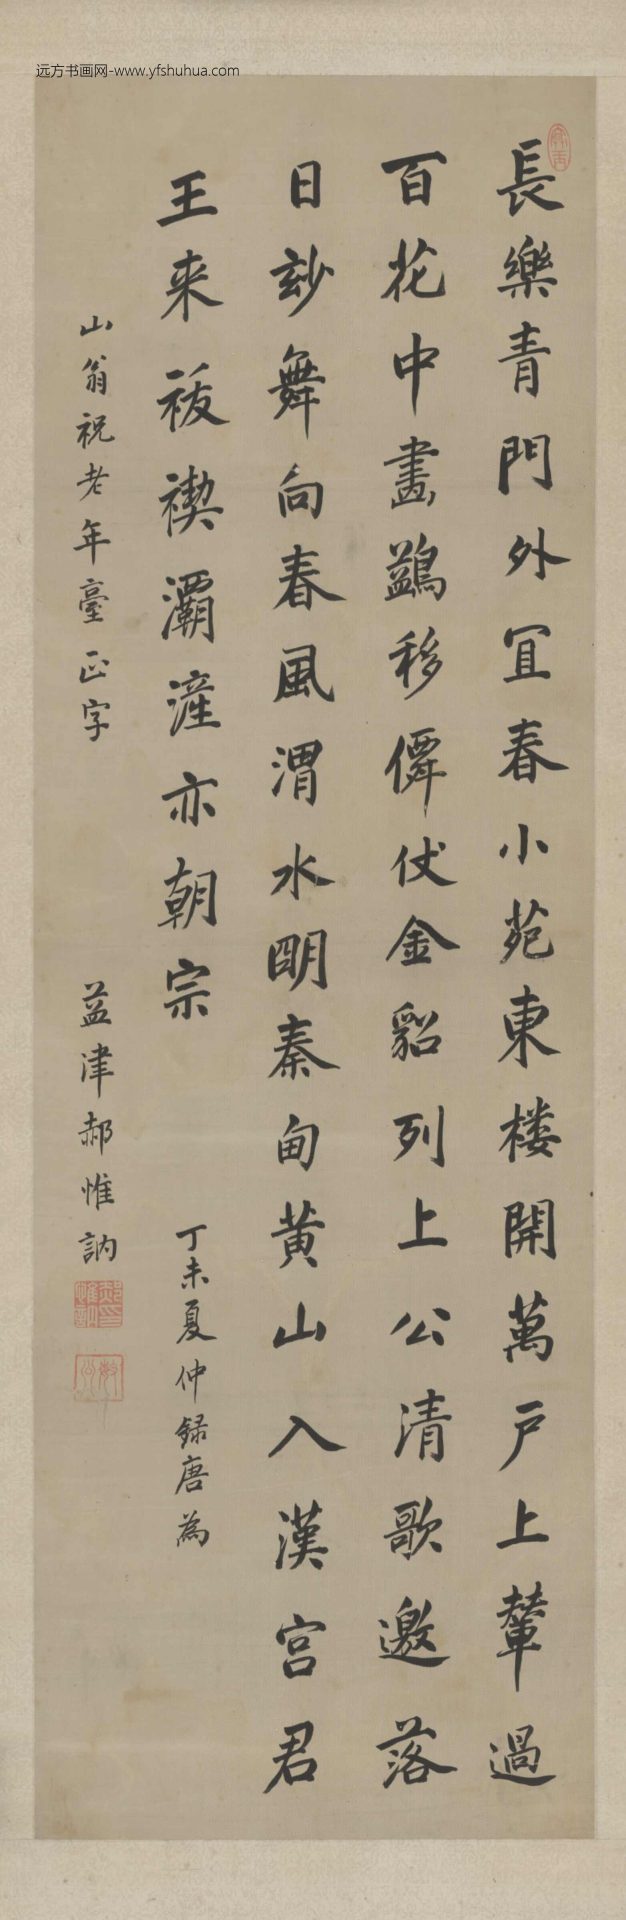 远方书画网-www.yfshuhua.com
長樂青門外宜春小苑東楼開萬户上輦過
百花中畫鷁移僊仗金貂列上公清歌邀落
日玅舞向春風渭水明秦甸黄山入漢宫君
王来祓禊灞滻亦朝宗
丁未夏仲録唐為
山翁祝老年臺正字
益津郝惟訥
郝惟訥印